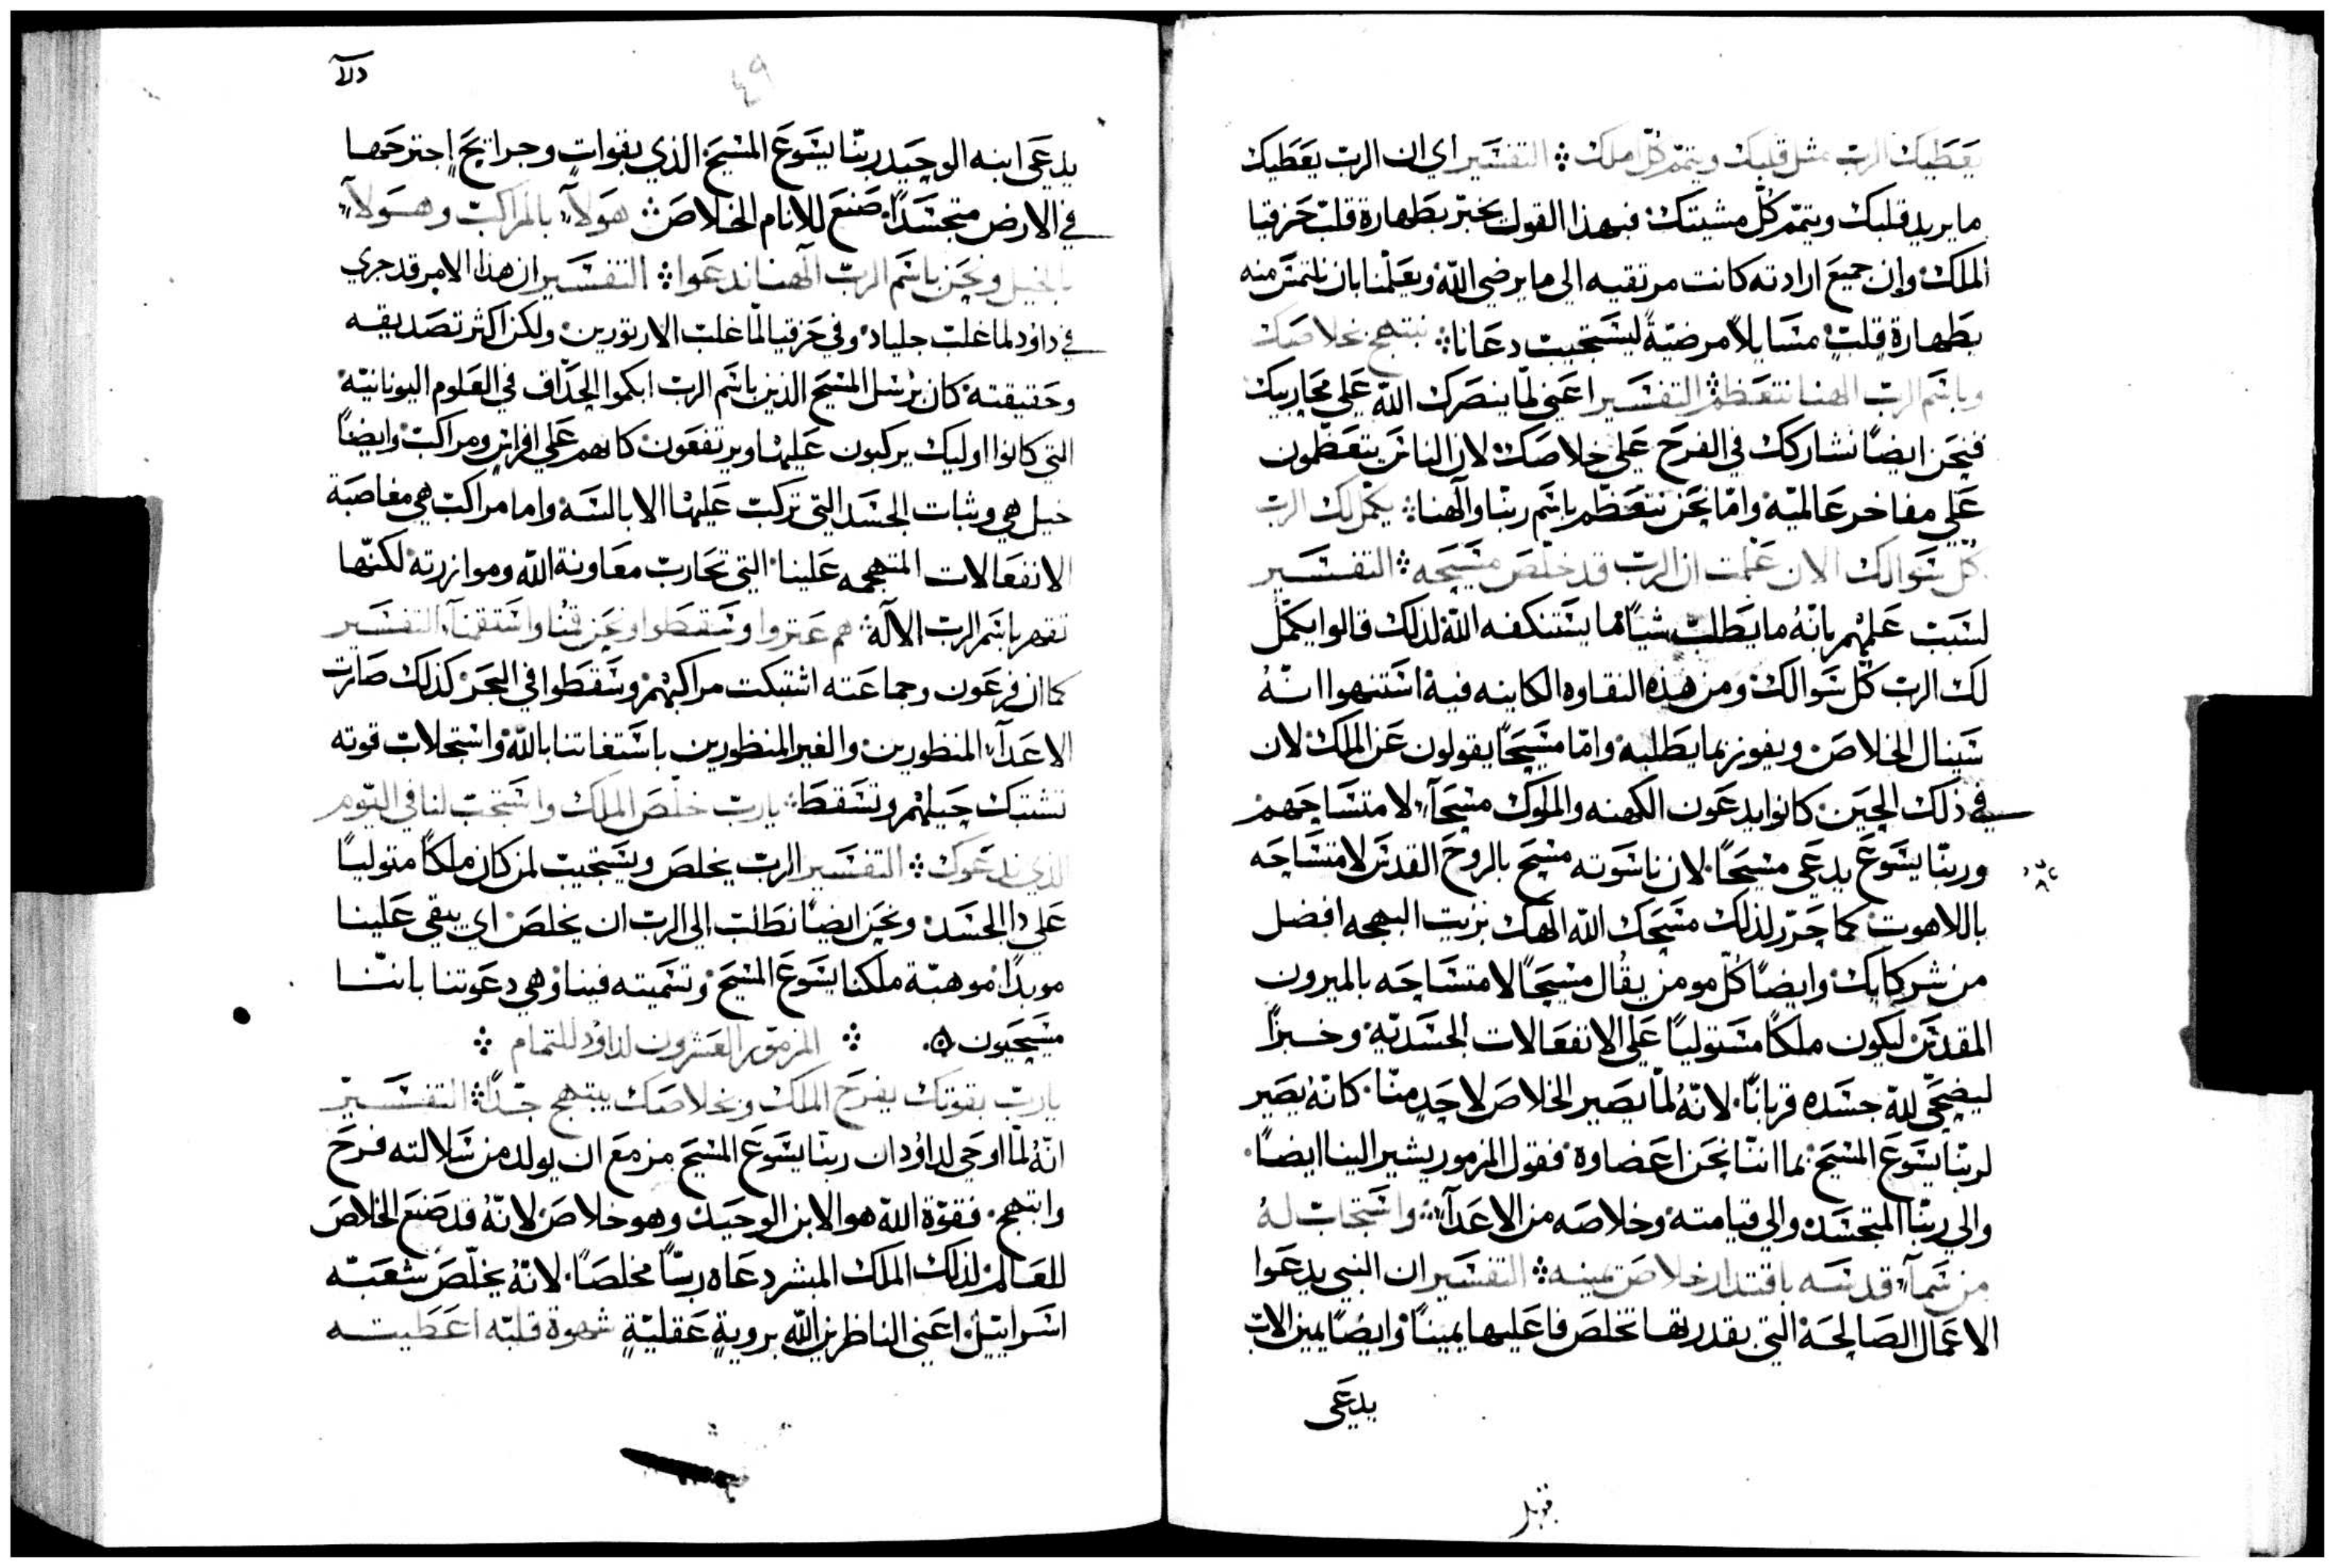 يعَطيك الرب مثل قلبك ويتمم كلّ ملك ܀ التفسَير اي ان الرب يعَطيك
ما يريد قلبك ويتمّم كُلّ مشيتك فبهذا القول يخبّر بطَهارة قلب حَزقيا
الملك وإن جميعَ ارادته كانت مرتقيه الى ما يرضي اللّه ويعَلّمنا بان نلتمسَ منه
بطَهارة قلبٍ مسَايلاً مرضيّةً ليسَتجيب دعَانا ܀ نبتهج بخلاصَك
وباسَم الرب الهنا نتعَظم ܀ التفسَير اعَني لمّا ينصَرك اللّه عَلي محَاربيك
فنحَن ايضًا نشاركك في الفرح عَلي خلاصَك لان الناسَ يتعَظّمون
عَلي مفاخر عَالميّه وامّا نحَن نتعَظّم باسَم ربّنا والَهنا ܀ يكمّل لك الرب
كُلّ سَوالك الان عَلمت ان الرب قد خلّصَ مسَيحَه ܀ التفسَير
لسَبب عَلمهم بانّهُ ما يطَلب شيًا مّا يسَتنكفه اللّه لذلك قالوا يكمّل
لك الرب كلّ سَوالك ومن هذه النقاوه الكاينه فيه اسَتنهوا انّهُ
سَينال الخلاصَ ويفوز بما يطَلبه وامّا مسَيحَاً يقولون عَن الملك لان
في ذلك الحِين كانوا يدعَون الكهنه والملوك مسَحَآ لامتسَاحَهم
وربّنا يسَوعَ يدعَى مسَيحَاً لان ناسَوته مسَيحَ بالروحَ القدسَ لامتسَاحَه
باللاهوت كما حَرّر لذلك مسَحَك اللّه الهك بزيت البهجه افضل
من شركايك وايضًا كُلّ مومن يقُال مسَيحَاً لامتسَاحَه بالميرون
المقدسَ ليكون ملكًا مسَتوليًا عَلي الانفعَالات الجسَديّه وخبزًا
ليضحَّى للّه جسَده قربانًا لانّهُ لمّا يصَير الخلاصَ لاحَدٍ منّا كانّهُ يصَير
لربّنا يسَوعَ المسَيحَ بما اننّا نحَن اعَضاوة فقول المزمور يشير الينا ايضًا
والي ربّنا المتجسَد والي قيامته وخلاصَه من الاعَدآ ܀ واسَتجاب لهُ
من سَمآ قدسَه باقتدار خلاصَ يمينه ܀ التفسَير ان النبي يدعَوا
الاعَمال الصَالحَة التي بقدرتها تخلصَ فاعَليها يمينًا وايضًا يمين الاب
يدعَى
٤٩
يدعَى ابنه الوحَيد ربّنا يسَوعَ المسَيحَ الذي بقواتٍ وجرايحَ إجترحَها
في الارض متجسَدًا صَنعَ للانام الخلاصَ ܀ هَولآ بالمراكب وهَولآ
بالخيل ونحَن باسَم الربّ الَهنا ندعَوا ܀ التفسَير ان هذا الامر قد جري
في داوُد لما غلب جلياد وفي حَزقيا لمّا غلب الاثورين ولكن اكثر تصَديقه
وحَقيقته كان برسَل المسَيحَ الذين باسَم الرب ابكموا الحِذّاف في العَلوم اليونانيّه
التي كانوا اوليك يركبون عَليها ويرتفعَون كانهم عَلي افراسٍ ومراكب وايضًا
خيل هي وثبات الجسَد التي تركب عَليها الابالسَه واما مراكب هي مغاصَبة
الانفعَالات المتهجمه عَلينا التي تحَارب معَاونة اللّه وموازرته لكنّها
تقهر باسَم الرب الآله ܀ هم عَتروا وسَقطَوا ونحَن قمُنا واسَتقمنا ܀ التفسَير
كما ان فرعَون وجماعَته اشتبكت مراكبهم وسَقطَوا في البحَر كذلك صَارت
الاعَدآ المنظورين والغير المنظورين باسَتغاتنا باللّه واسَتجلاب قوته
تشتبك حَيلهم وتسَقطَ ܀ يارب خلّصَ الملك واسَتجب لنا في اليّوم
الذي ندعَوك ܀ التفسَير الرب يخلصَ ويسَتجيب لمن كان ملكًا متوليًا
عَلي دا الجسَد ونحَن ايضًا نطَلب الي الرب ان يخلصَ اي يبقي عَلينا
موبدًا موهبّة ملكنا يسَوعَ المسَيحَ وتسَميته فينا وهي دعَوتنا باننّا
مسَيحَيون ܀ المزمَور العَشرون لداوُد للتمام ܀
يارب بقوتك يفرحَ الملك وبخلاصَك يبتهج جدًّا ܀ التفسَير
انّهُ لمّا اوحَي لداوُد ان ربّنا يسَوعَ المسَيحَ مزمعَ ان يولد من سَلالته فرحَ
وابتهج فقوّة اللّه هو الابن الوحَيد وهو خلاصَ لانّهُ قد صَنعَ الخلاصَ
للعَالم لذلك الملك المبشر دعَاه ربّاً مخلصَاً لانّهُ يخلّصَ شعَبه
اسَراييل اعَني الناظرين اللّه برويةٍ عَقليّةٍ شهوة قلبّه اعَطَيته